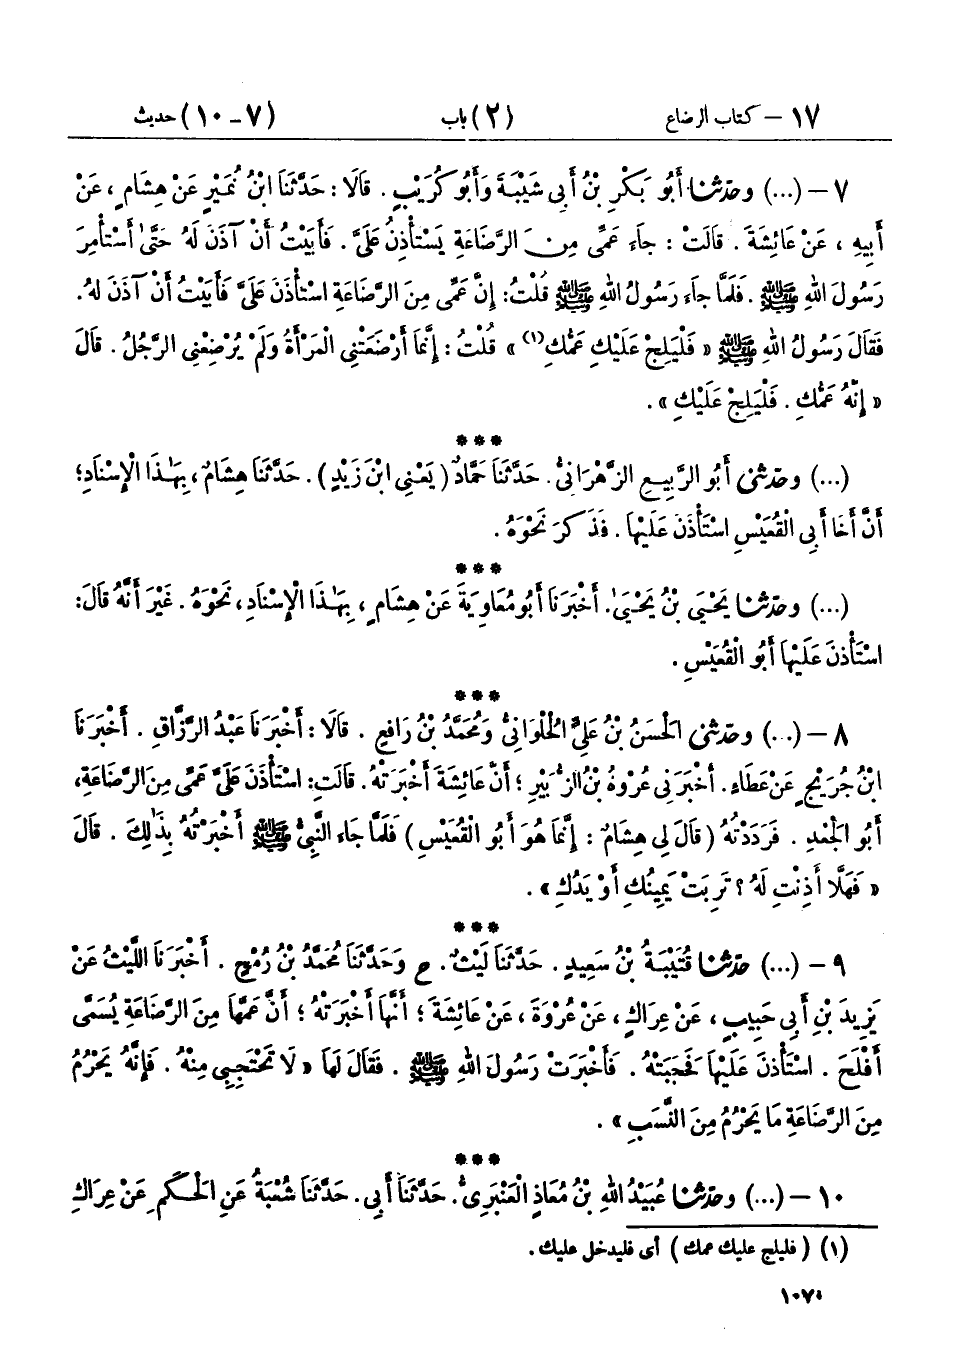 ١٧ – كتاب الرضاع (٢) باب (٧-١٠) حديث
٧ – (...) وحدثنا أَبُو بَكْرِ بْنُ أَبِي شَيْبَةَ وَأَبُو كُرَيْبٍ. قَالَا: حَدَّثَنَا ابْنُ نُمَيْرٍ عَنْ هِشَامٍ، عَنْ
أَبِيهِ، عَنْ عَائِشَةَ. قَالَتْ: جَاءَ عَمِّي مِنَ الرَّضَاعَةِ يَسْتَأْذِنُ عَلَيَّ. فَأَبَيْتُ أَنْ آذَنَ لَهُ حَتَّىٰ أَسْتَأْمِرَ
رَسُولَ اللهِ ﷺ. فَلَمَّا جَاءَ رَسُولُ اللهِ ﷺ قُلْتُ: إِنَّ عَمِّي مِنَ الرَّضَاعَةِ اسْتَأْذَنَ عَلَيَّ فَأَبَيْتُ أَنْ آذَنَ لَهُ.
فَقَالَ رَسُولُ اللهِ ﷺ « فَلْيَلِجْ عَلَيْكِ عَمُّكِ(١) » قُلْتُ: إِنَّمَا أَرْضَعَتْنِي الْمَرْأَةُ وَلَمْ يُرْضِعْنِي الرَّجُلُ. قَالَ
« إِنَّهُ عَمُّكِ. فَلْيَلِجْ عَلَيْكِ ».
***
(...) وحدثني أَبُو الرَّبِيعِ الزَّهْرَانِيُّ. حَدَّثَنَا حَمَّادٌ (يَعْنِي ابْنَ زَيْدٍ). حَدَّثَنَا هِشَامٌ، بِهَٰذَا الْإِسْنَادِ؛
أَنَّ أَخَا أَبِي الْقُعَيْسِ اسْتَأْذَنَ عَلَيْهَا. فَذَكَرَ نَحْوَهُ.
***
(...) وحدثنا يَحْيَى بْنُ يَحْيَىٰ. أَخْبَرَنَا أَبُو مُعَاوِيَةَ عَنْ هِشَامٍ، بِهَٰذَا الْإِسْنَادِ، نَحْوَهُ. غَيْرَ أَنَّهُ قَالَ:
اسْتَأْذَنَ عَلَيْهَا أَبُو الْقُعَيْسِ.
***
٨ – (...) وحدثني الْحَسَنُ بْنُ عَلِيٍّ الْحُلْوَانِيُّ وَمُحَمَّدُ بْنُ رَافِعٍ. قَالَا: أَخْبَرَنَا عَبْدُ الرَّزَّاقِ. أَخْبَرَنَا
ابْنُ جُرَيْجٍ عَنْ عَطَاءٍ. أَخْبَرَنِي عُرْوَةُ بْنُ الزُّبَيْرِ؛ أَنَّ عَائِشَةَ أَخْبَرَتْهُ. قَالَتِ: اسْتَأْذَنَ عَلَيَّ عَمِّي مِنَ الرَّضَاعَةِ،
أَبُو الْجَعْدِ. فَرَدَدْتُهُ (قَالَ لِي هِشَامٌ: إِنَّمَا هُوَ أَبُو الْقُعَيْسِ) فَلَمَّا جَاءَ النَّبِيُّ ﷺ أَخْبَرْتُهُ بِذَٰلِكَ. قَالَ
« فَهَلَّا أَذِنْتِ لَهُ؟ تَرِبَتْ يَمِينُكِ أَوْ يَدُكِ ».
***
٩ – (...) حدثنا قُتَيْبَةُ بْنُ سَعِيدٍ. حَدَّثَنَا لَيْثٌ. ح وَحَدَّثَنَا مُحَمَّدُ بْنُ رُمْحٍ. أَخْبَرَنَا اللَّيْثُ عَنْ
يَزِيدَ بْنِ أَبِي حَبِيبٍ، عَنْ عِرَاكٍ، عَنْ عُرْوَةَ، عَنْ عَائِشَةَ؛ أَنَّهَا أَخْبَرَتْهُ؛ أَنَّ عَمَّهَا مِنَ الرَّضَاعَةِ يُسَمَّى
أَفْلَحَ. اسْتَأْذَنَ عَلَيْهَا فَحَجَبَتْهُ. فَأَخْبَرَتْ رَسُولَ اللهِ ﷺ. فَقَالَ لَهَا « لَا تَحْتَجِبِي مِنْهُ. فَإِنَّهُ يَحْرُمُ
مِنَ الرَّضَاعَةِ مَا يَحْرُمُ مِنَ النَّسَبِ ».
***
١٠ – (...) وحدثنا عُبَيْدُ اللهِ بْنُ مُعَاذٍ الْعَنْبَرِيُّ. حَدَّثَنَا أَبِي. حَدَّثَنَا شُعْبَةُ عَنِ الْحَكَمِ عَنْ عِرَاكِ
(١) (فليلج عليك عمك) أى فليدخل عليك.
١٠٧٠